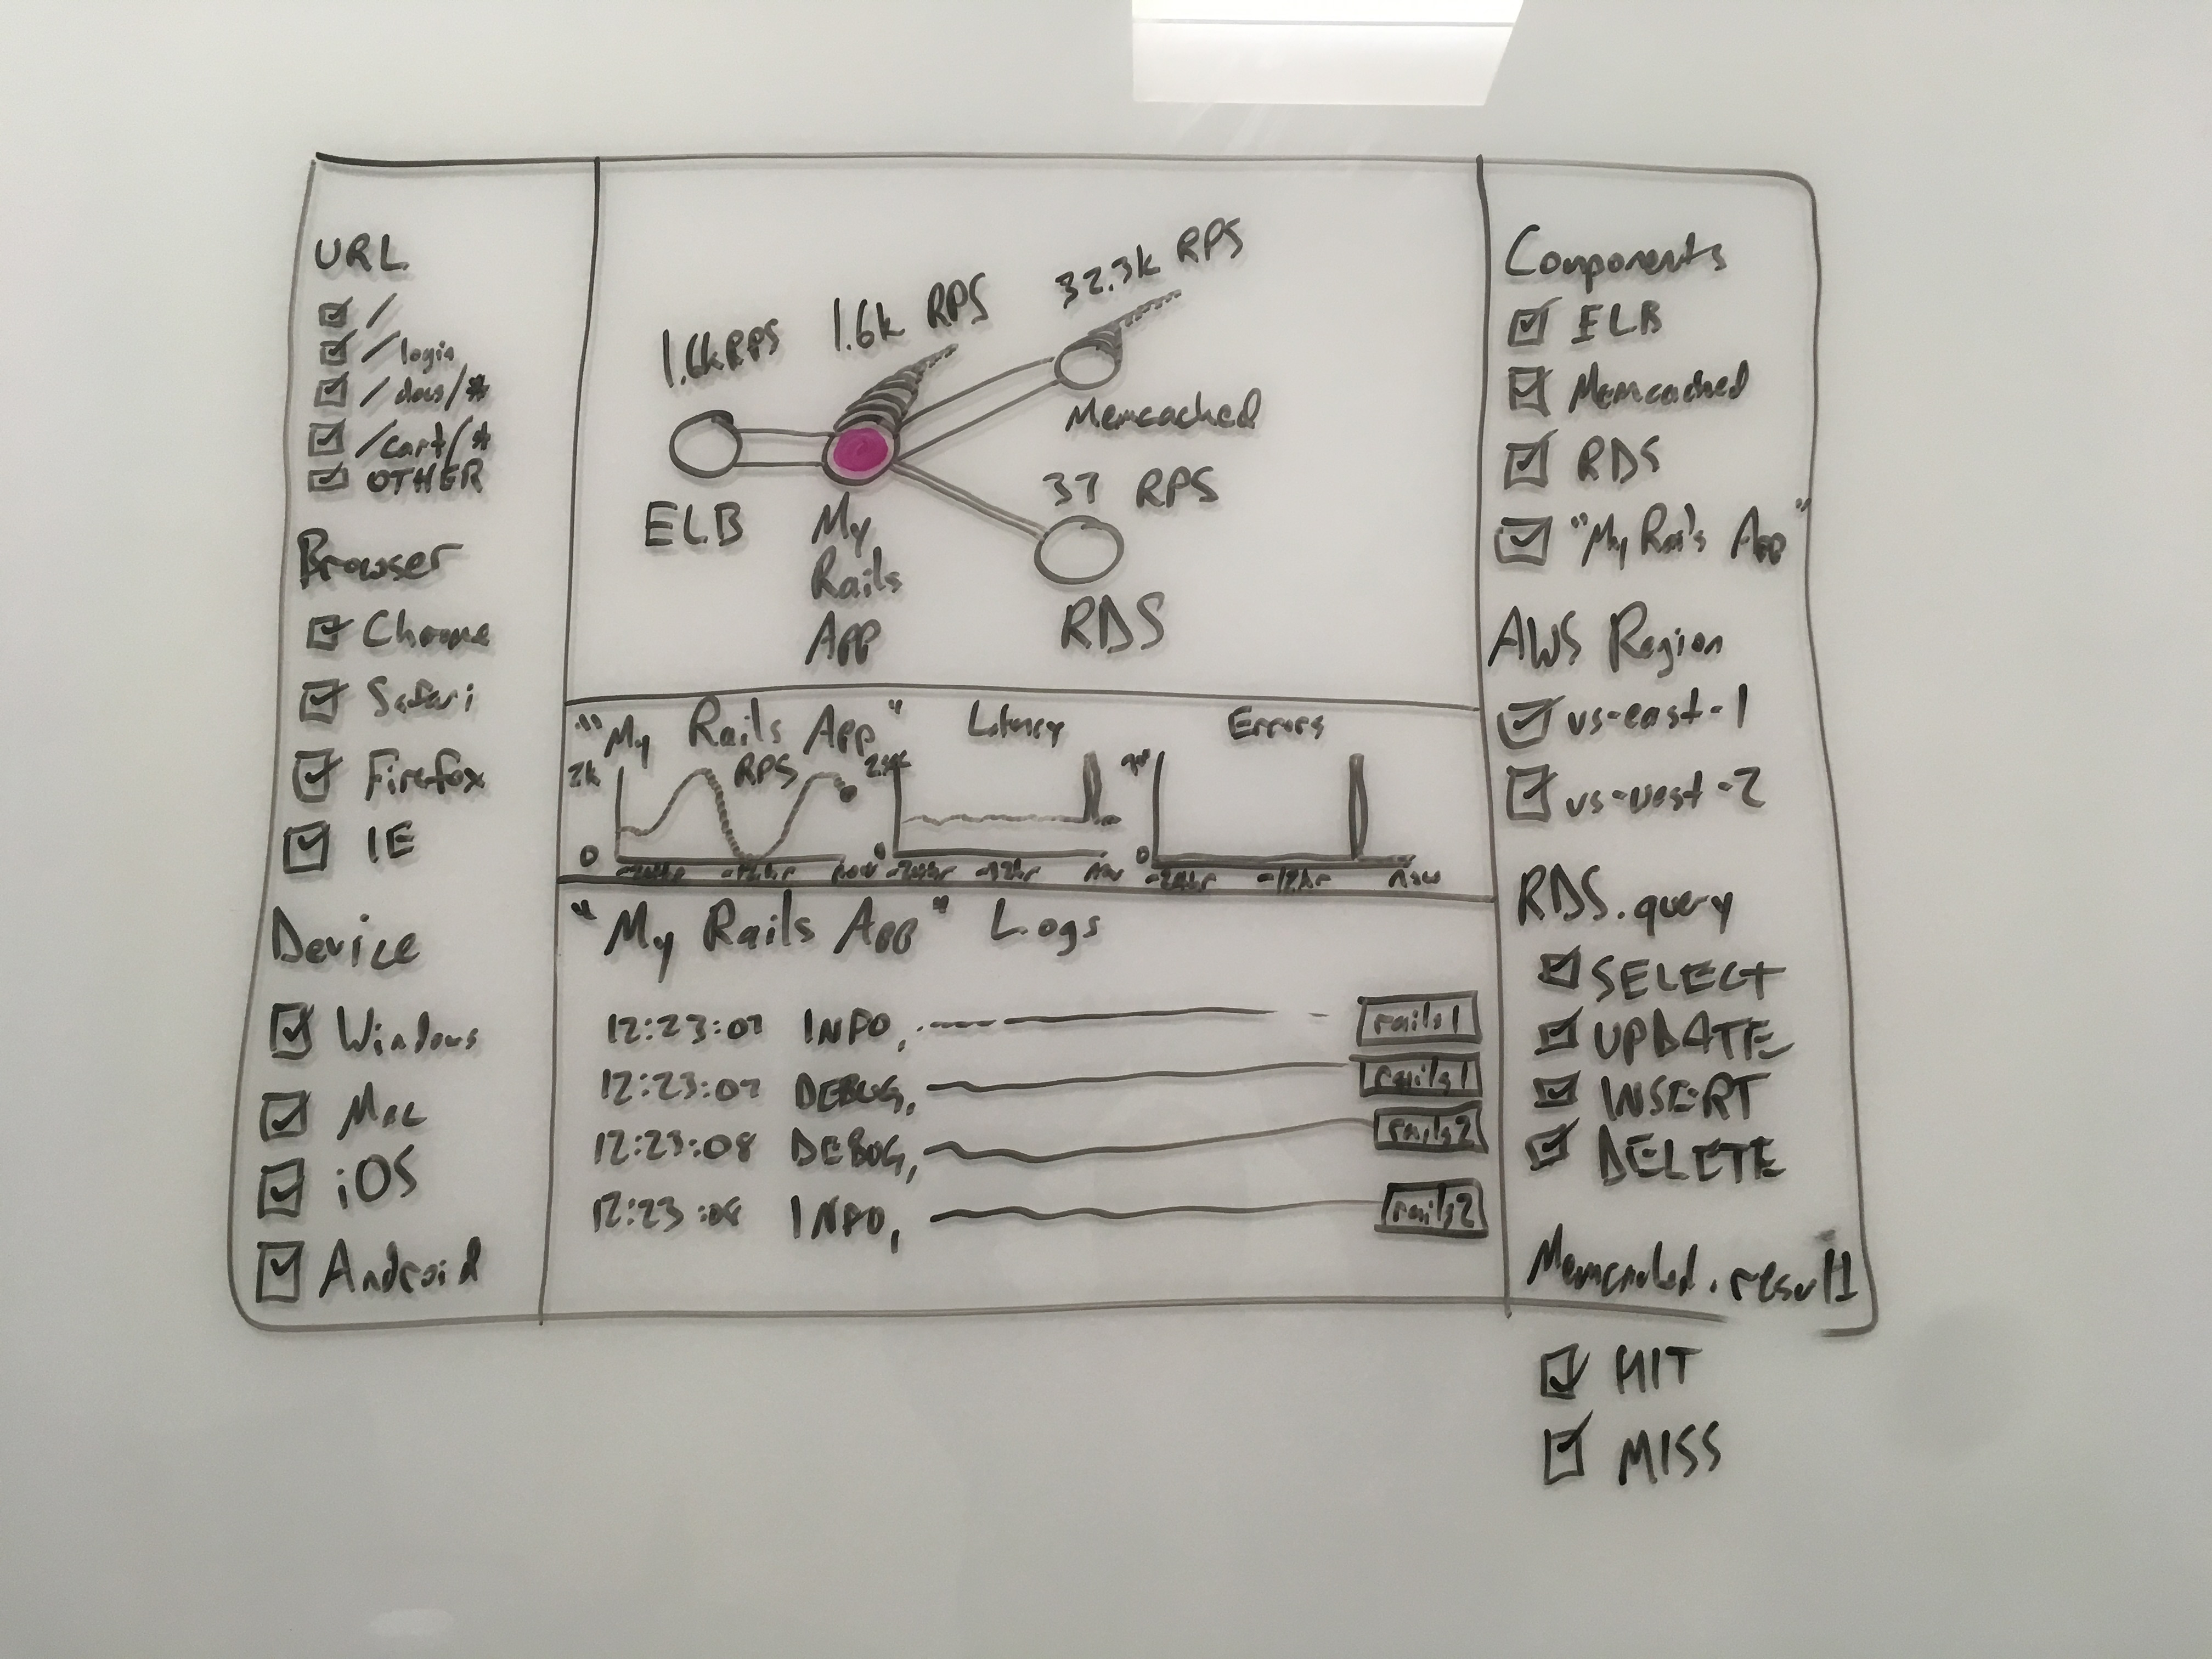 URL
/
/login
/docs/*
/cart/*
OTHER
Browser
Chrome
Safari
Firefox
IE
Device
Windows
Mac
iOS
Android
1.6k RPS
1.6k RPS
32.3k RPS
ELB
My
Rails
App
Memcached
37 RPS
RDS
"My Rails App"
RPS
2k
0
-24hr -12hr now
Latency
0
-24hr -12hr now
Errors
0
-24hr -12hr now
"My Rails App" Logs
12:23:07 INFO, rails1
12:23:07 DEBUG, rails1
12:23:08 DEBUG, rails2
12:23:08 INFO, rails2
Components
ELB
Memcached
RDS
"My Rails App"
AWS Region
us-east-1
us-west-2
RDS.query
SELECT
UPDATE
INSERT
DELETE
Memcached.result
HIT
MISS